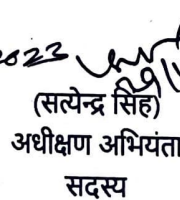 2023
(सत्येन्द्र सिंह)
अधीक्षण अभियंता
सदस्य